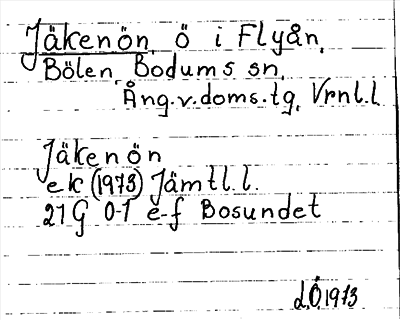 Jäkenön, ö i Flyån,
Bölen, Bodums sn,
Ång.v.doms.tg, Vrnl.l
Jäkenön
ek (1973) Jämtl.l.
21G 0-1 e-f Bosundet
L.Ö.1973